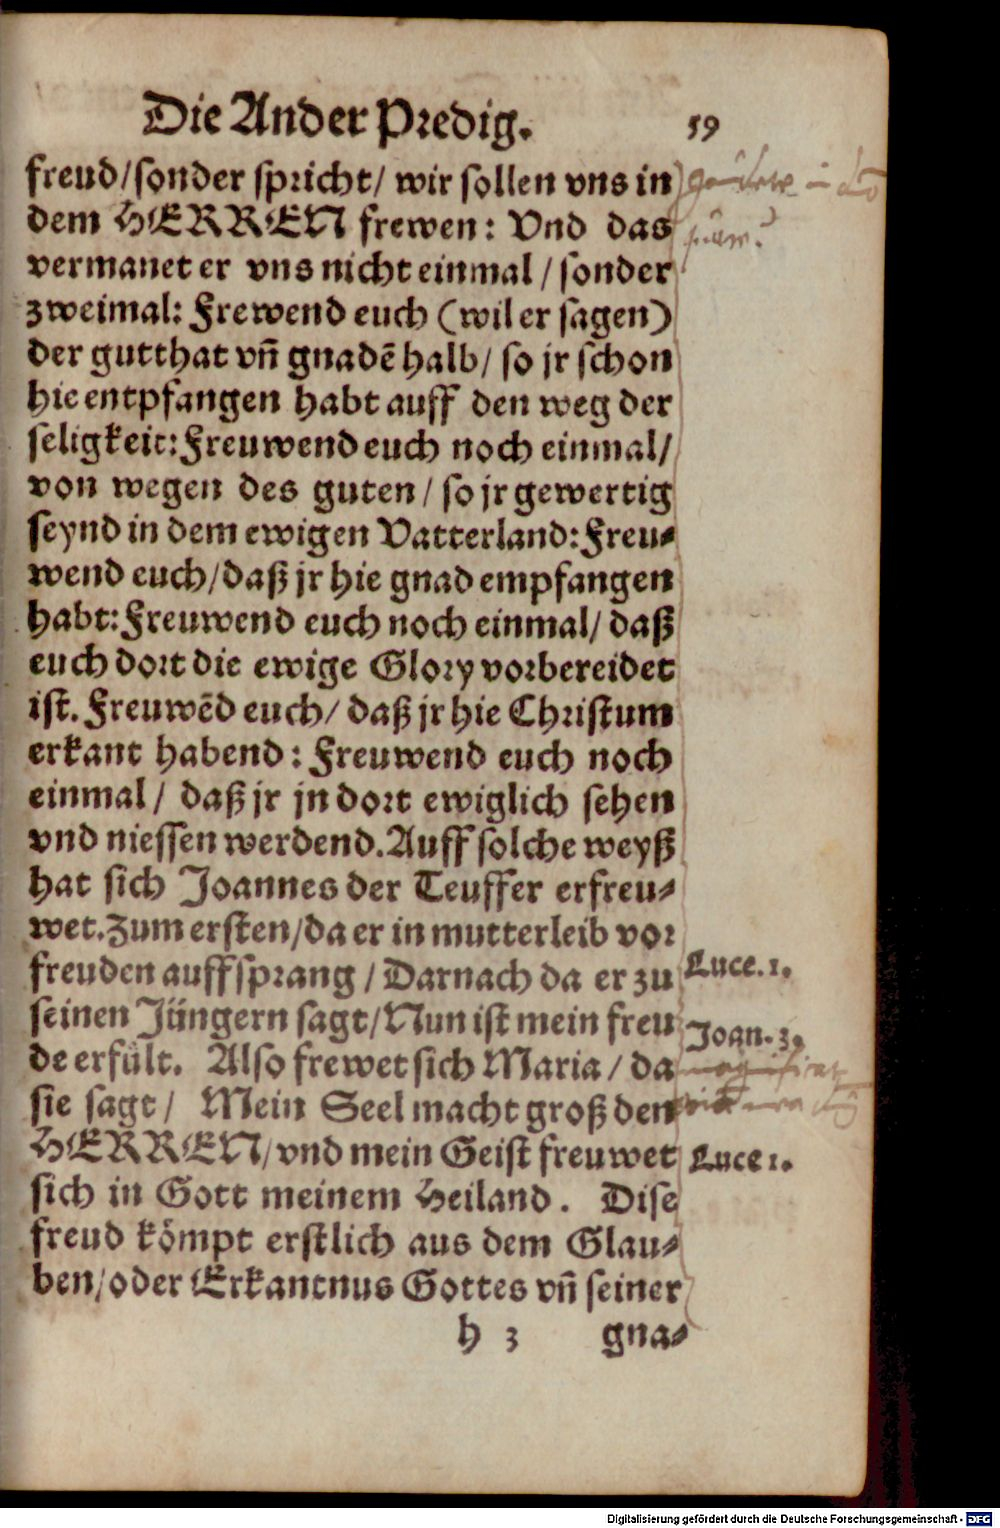 Die Ander Predig. 59
freud/sonder spricht/ wir sollen vns in
dem HERREN frewen: Vnd das
vermanet er vns nicht einmal / sonder
zweimal: Frewend euch (wil er sagen)
der gutthat vn̄ gnadē halb/ so jr schon
hie entpfangen habt auff den weg der
seligkeit: Freuwend euch noch einmal/
von wegen des guten / so jr gewertig
seynd in dem ewigen Vatterland: Freu-
wend euch/daß jr hie gnad empfangen
habt: Freuwend euch noch einmal/ daß
euch dort die ewige Glory vorbereidet
ist. Freuwēd euch/ daß jr hie Christum
erkant habend: Freuwend euch noch
einmal / daß jr jn dort ewiglich sehen
vnd niessen werdend. Auff solche weyß
hat sich Joannes der Teuffer erfreu-
wet. Zum ersten/da er in mutterleib vor
freuden auffsprang / Darnach da er zu
seinen Jüngern sagt/Nun ist mein freu
de erfült. Also frewet sich Maria / da
sie sagt / Mein Seel macht groß den
HERREN/vnd mein Geist freuwet
sich in Gott meinem Heiland. Dise
freud kömpt erstlich aus dem Glau-
ben/oder Erkantnus Gottes vn̄ seiner
h 3 gna-
gaudete in
Luce. 1.
Joan. 3.
magnificat
Luce 1.
Digitalisierung gefördert durch die Deutsche Forschungsgemeinschaft - DFG